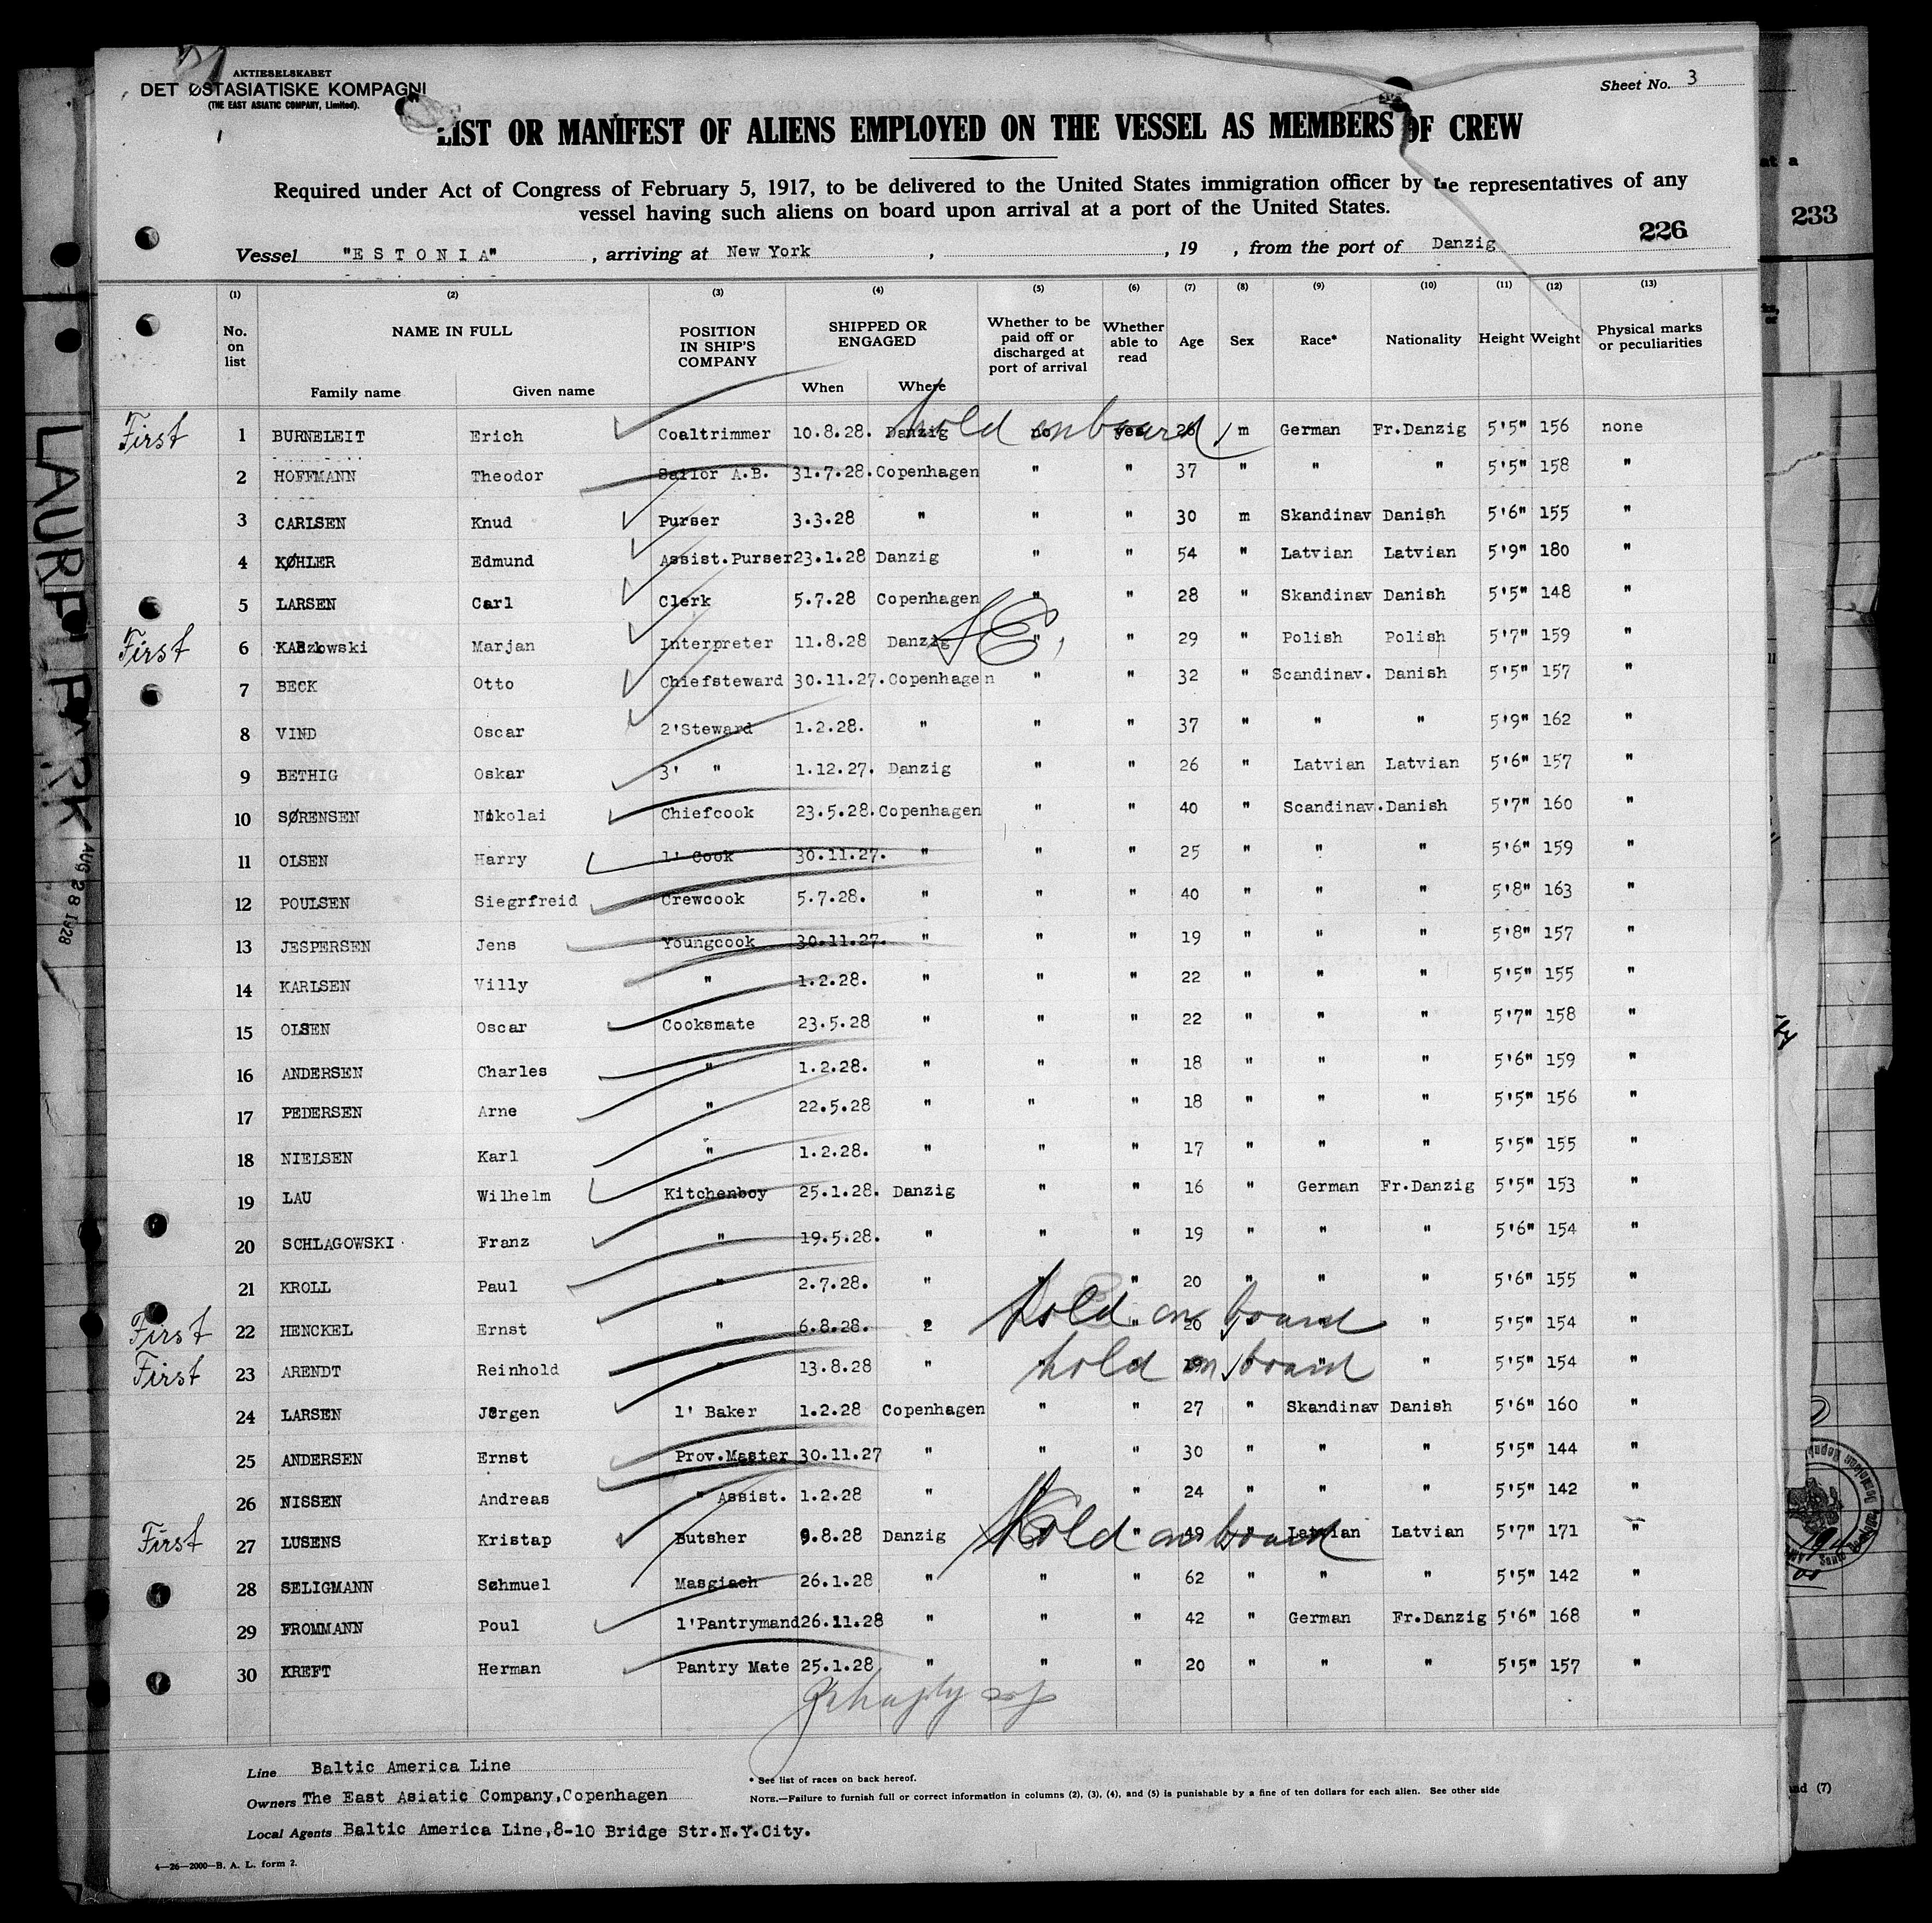 AKTIESELSKABET
DET ØSTASIATISKE KOMPAGNI
(THE EAST ASIATIC COMPANY, Limited).
Sheet No. 3
LIST OR MANIFEST OF ALIENS EMPLOYED ON THE VESSEL AS MEMBERS OF CREW
Required under Act of Congress of February 5, 1917, to be delivered to the United States immigration officer by the representatives of any
vessel having such aliens on board upon arrival at a port of the United States.
226
233
Vessel "ESTONIA", arriving at New York, , 19 , from the port of Danzig
(1) (2) (3) (4) (5) (6) (7) (8) (9) (10) (11) (12) (13)
No. on list NAME IN FULL Family name Given name POSITION IN SHIP'S COMPANY SHIPPED OR ENGAGED When Where Whether to be paid off or discharged at port of arrival Whether able to read Age Sex Race* Nationality Height Weight Physical marks or peculiarities
First 1 BURNELEIT Erich Coaltrimmer 10.8.28. Danzig hold on board no yes 26 m German Fr.Danzig 5'5" 156 none
2 HOFFMANN Theodor Sailor A.B. 31.7.28. Copenhagen " " 37 " " " 5'5" 158 "
3 CARLSEN Knud Purser 3.3.28 " " " 30 m Skandinav Danish 5'6" 155 "
4 KØHLER Edmund Assist.Purser 23.1.28 Danzig " " 54 " Latvian Latvian 5'9" 180 "
5 LARSEN Carl Clerk 5.7.28 Copenhagen " " 28 " Skandinav Danish 5'5" 148 "
First 6 KARzlowski Marjan Interpreter 11.8.28 Danzig " " 29 " Polish Polish 5'7" 159 "
7 BECK Otto Chiefsteward 30.11.27. Copenhagen " " 32 " Scandinav. Danish 5'5" 157 "
8 VIND Oscar 2'Steward 1.2.28. " " " 37 " " " 5'9" 162 "
9 BETHIG Oskar 3' " 1.12.27. Danzig " " 26 " Latvian Latvian 5'6" 157 "
10 SØRENSEN Nikolai Chiefcook 23.5.28. Copenhagen " " 40 " Scandinav. Danish 5'7" 160 "
11 OLSEN Harry 1' Cook 30.11.27. " " " 25 " " " 5'6" 159 "
12 POULSEN Siegrfreid Crewcook 5.7.28. " " " 40 " " " 5'8" 163 "
13 JESPERSEN Jens Youngcook 30.11.27. " " " 19 " " " 5'8" 157 "
14 KARLSEN Villy " 1.2.28. " " " 22 " " " 5'5" 155 "
15 OLSEN Oscar Cooksmate 23.5.28 " " " 22 " " " 5'7" 158 "
16 ANDERSEN Charles " 1.2.28. " " " 18 " " " 5'6" 159 "
17 PEDERSEN Arne " 22.5.28 " " " 18 " " " 5'5" 156 "
18 NIELSEN Karl " 1.2.28. " " " 17 " " " 5'5" 155 "
19 LAU Wilhelm Kitchenboy 25.1.28. Danzig " " 16 " German Fr.Danzig 5'5" 153 "
20 SCHLAGOWSKI Franz " 19.5.28. " " " 19 " " " 5'6" 154 "
21 KROLL Paul " 2.7.28. " " " 20 " " " 5'6" 155 "
First 22 HENCKEL Ernst " 6.8.28. 2 hold on board " 20 " " 5'5" 154 "
First 23 ARENDT Reinhold " 13.8.28 " " hold on board 19 " " 5'5" 154 "
24 LARSEN Jørgen 1' Baker 1.2.28 Copenhagen " " 27 " Skandinav Danish 5'6" 160 "
25 ANDERSEN Ernst Prov.Master 30.11.27 " " " 30 " " " 5'5" 144 "
26 NISSEN Andreas " Assist. 1.2.28 " " 24 " " " 5'5" 142 "
First 27 LUSENS Kristap Butsher 9.8.28 Danzig Hold on board " 49 " Latvian Latvian 5'7" 171 "
28 SELIGMANN Schmuel Masgiach 26.1.28 " " " 62 " " " 5'5" 142 "
29 FROMMANN Poul 1'Pantrymand 26.11.28 " " " 42 " German Fr.Danzig 5'6" 168 "
30 KREFT Herman Pantry Mate 25.1.28 " " " 20 " " " 5'5" 157 "
Line Baltic America Line
Owners The East Asiatic Company,Copenhagen
Local Agents Baltic America Line,8-10 Bridge Str.N.Y.City.
* See list of races on back hereof.
NOTE.—Failure to furnish full or correct information in columns (2), (3), (4), and (5) is punishable by a fine of ten dollars for each alien. See other side
4—26—2000—B. A. L. form 2.
AUG 28 1928
and (7)